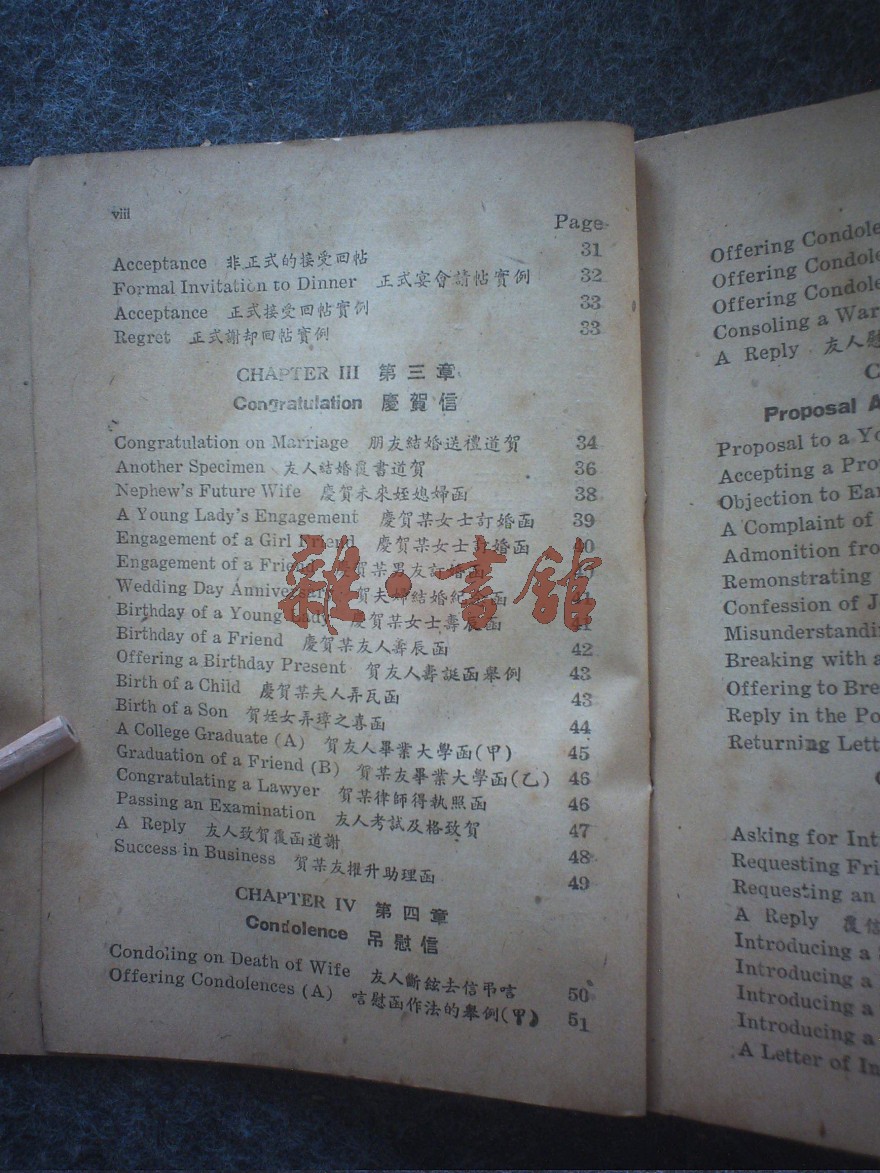 viii
Page
Acceptance 非正式的接受回帖 31
Formal Invitation to Dinner 正式宴會請帖實例 32
Acceptance 正式接受回帖實例 33
Regret 正式謝却回帖實例 33
CHAPTER III 第三章
Congratulation 慶賀信
Congratulation on Marriage 朋友結婚送禮道賀 34
Another Specimen 友人結婚覆書道賀 36
Nephew's Future Wife 慶賀未來姪媳婦函 38
A Young Lady's Engagement 慶賀某女士訂婚函 39
Engagement of a Girl Friend 慶賀某女士訂婚函 40
Engagement of a Friend 賀某男友訂婚函
Wedding Day Anniversary 賀夫婦結婚紀念函 41
Birthday of a Young Lady 慶賀某女士壽辰函 41
Birthday of a Friend 慶賀某友人壽辰函 42
Offering a Birthday Present 賀友人壽誕函舉例 43
Birth of a Child 慶賀某夫人弄瓦函 43
Birth of a Son 賀姪女弄璋之喜函 44
A College Graduate (A) 賀友人畢業大學函(甲) 45
Graduation of a Friend (B) 賀某友畢業大學函(乙) 46
Congratulating a Lawyer 賀某律師得執照函 46
Passing an Examination 友人考試及格致賀 47
A Reply 友人致賀覆函道謝 48
Success in Business 賀某友擢升助理函 49
CHAPTER IV 第四章
Condolence 吊慰信
Condoling on Death of Wife 友人斷絃去信弔唁 50
Offering Condolences (A) 唁慰函作法的舉例(甲) 51
雜·書館
Offering Condole
Offering Condole
Offering Condole
Consoling a War
A Reply 友人慰
C
Proposal A
Proposal to a Yo
Accepting a Pro
Objection to Ear
A Complaint of
Admonition fro
Remonstrating
Confession of J
Misunderstandi
Breaking with a
Offering to Bre
Reply in the Po
Returning Lett
C
Asking for Int
Requesting Fri
Requesting an
A Reply 覆信
Introducing a
Introducing a
Introducing a
Introducing a
A Letter of In